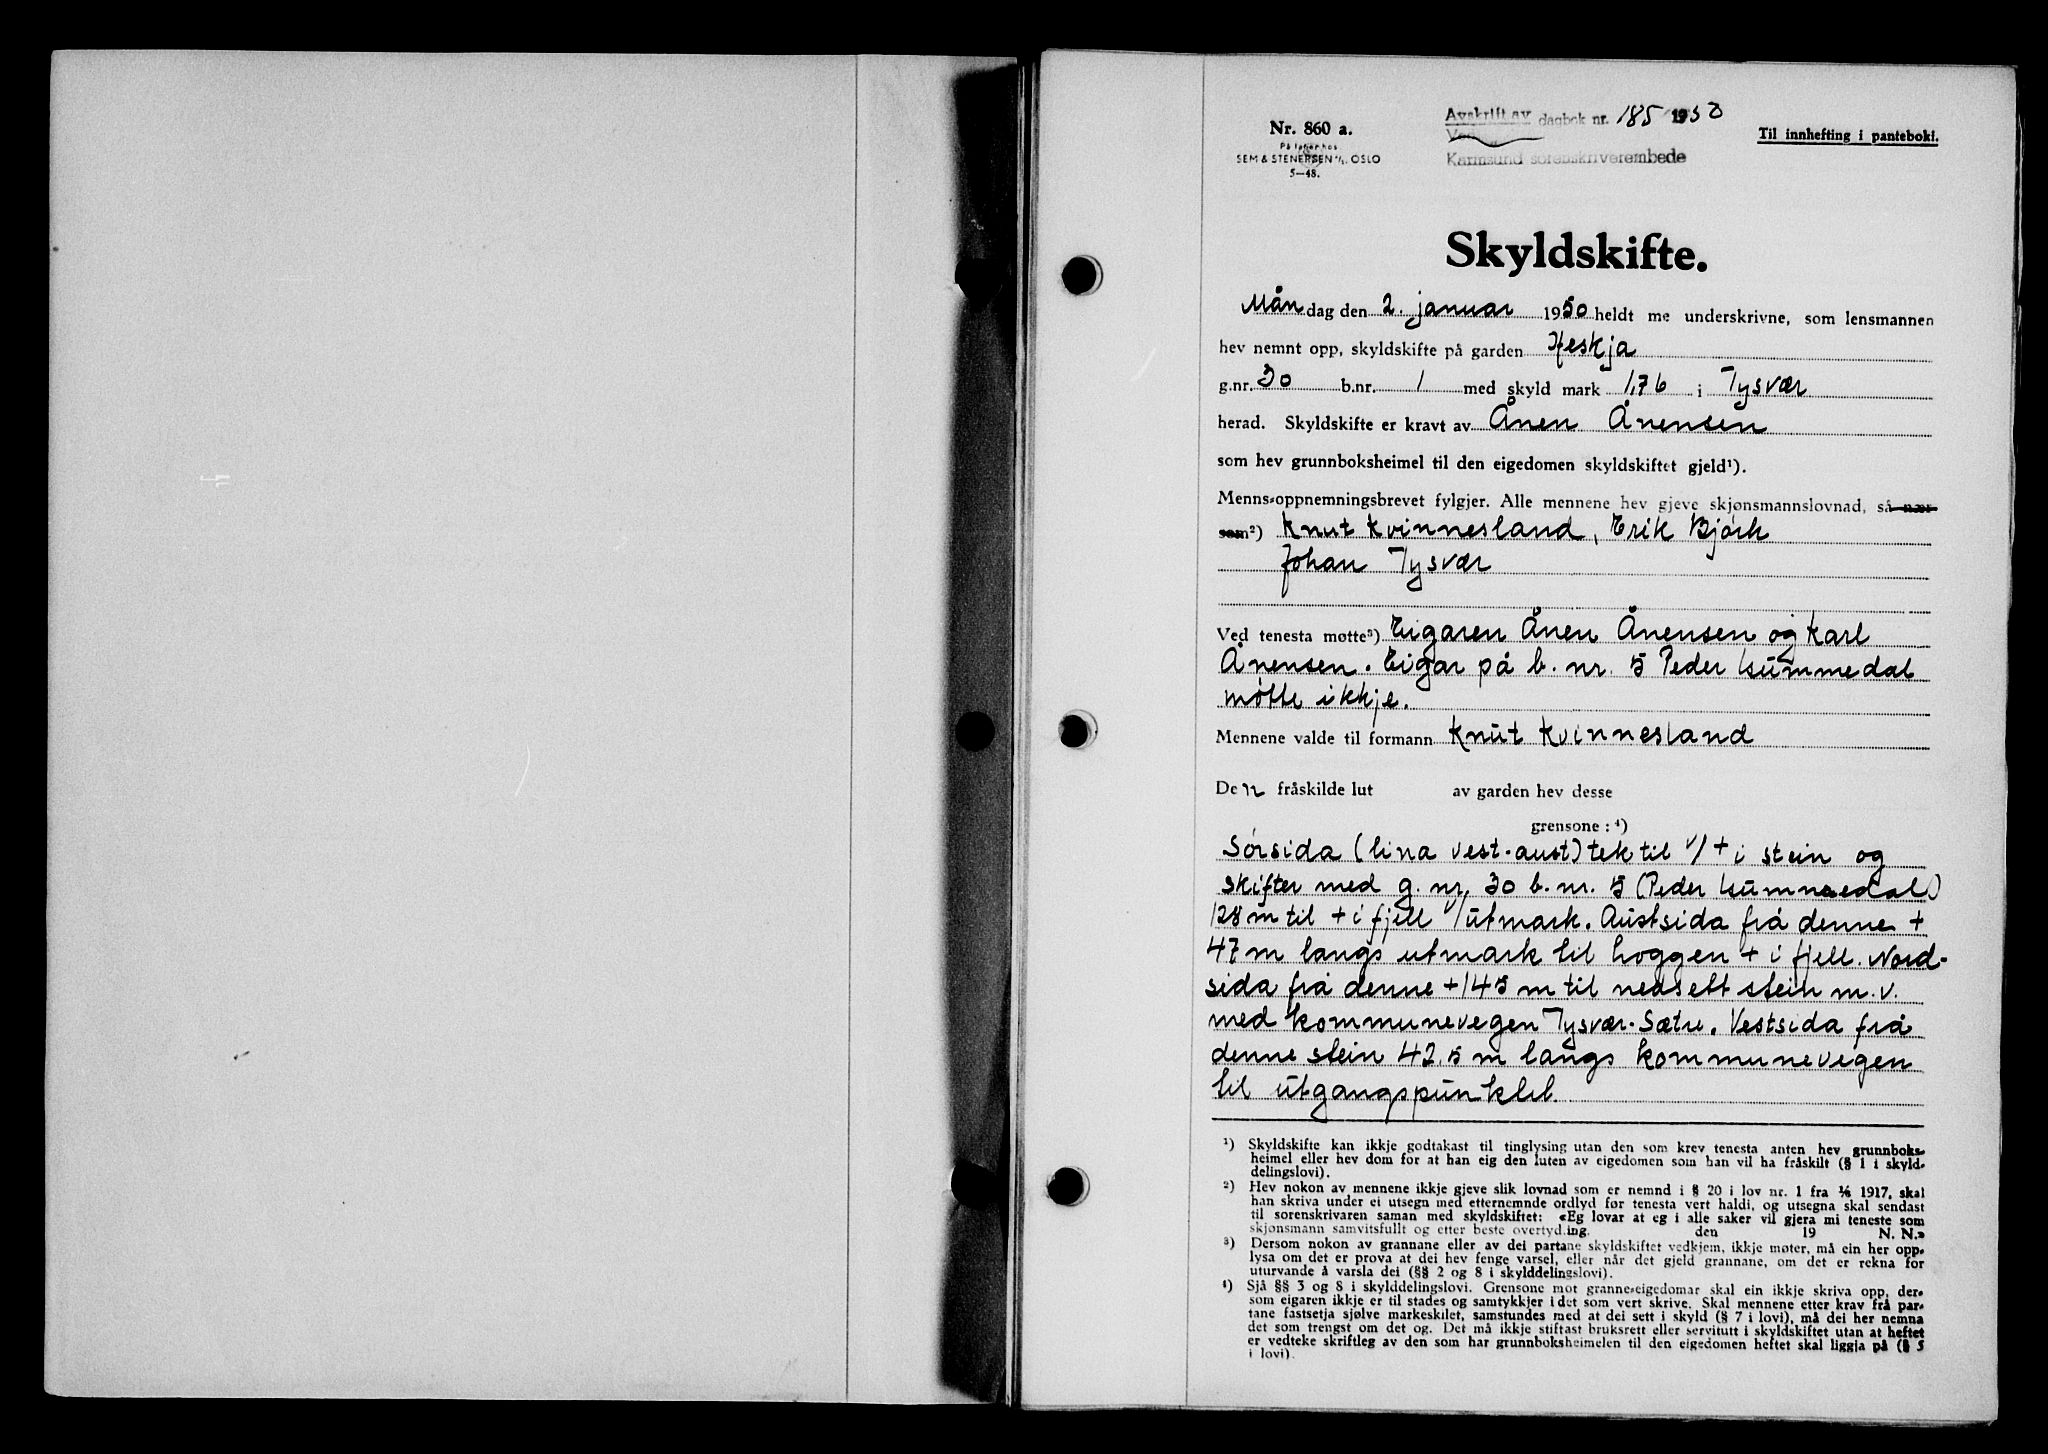 Nr. 860 a.
På lager hos
SEM & STENERSEN A/S, OSLO
5—48.
Avskrift av dagbok nr. 185 1950
Karmsund sorenskriverembede
Til innhefting i panteboki.
Skyldskifte.
Måndag den 2. januar 1950 heldt me underskrivne, som lensmannen
hev nemnt opp, skyldskifte på garden Heskja
g.nr. 30 b.nr. 1 med skyld mark 1,76 i Tysvær
herad. Skyldskifte er kravt av Ånen Ånensen
som hev grunnboksheimel til den eigedomen skyldskiftet gjeld¹).
Menns-oppnemningsbrevet fylgjer. Alle mennene hev gjeve skjønsmannslovnad, så nær
som²) Knut Kvinnesland, Erik Bjørk
Johan Tysvær
Ved tenesta møtte³) Eigaren Ånen Ånensen og Karl
Ånensen. Eigar på b. nr. 5 Peder Hummedal
møtte ikkje.
Mennene valde til formann Knut Kvinnesland
De n fråskilde lut av garden hev desse
grensone: ⁴)
Sørsida (lina vest-aust) tek til v/ + i stein og
skifter med g. nr. 30 b. nr. 5 (Peder Hummedal)
128 m til + i fjell /utmark. Austsida frå denne +
47 m langs utmark til hoggen + i fjell. Nord-
sida frå denne + 145 m til nedsett stein m. v.
med kommunevegen Tysvær-Sætre. Vestsida frå
denne stein 42,5 m langs kommunevegen
til utgangspunktet.
¹) Skyldskifte kan ikkje godtakast til tinglysing utan den som krev tenesta anten hev grunnboks-
heimel eller hev dom for at han eig den luten av eigedomen som han vil ha fråskilt (§ 1 i skyld-
delingslovi).
²) Hev nokon av mennene ikkje gjeve slik lovnad som er nemnd i § 20 i lov nr. 1 fra 1/6 1917, skal
han skriva under ei utsegn med etternemnde ordlyd før tenesta vert haldi, og utsegna skal sendast
til sorenskrivaren saman med skyldskiftet: «Eg lovar at eg i alle saker vil gjera mi teneste som
skjønsmann samvitsfullt og etter beste overtyding. den 19 N. N.»
³) Dersom nokon av grannane eller av dei partane skyldskiftet vedkjem, ikkje møter, må ein her opp-
lysa om det er prova at dei hev fenge varsel, eller når det gjeld grannane, om det er rekna for
uturvande å varsla dei (§§ 2 og 8 i skylddelingslovi).
⁴) Sjå §§ 3 og 8 i skylddelingslovi. Grensone mot granne-eigedomar skal ein ikkje skriva opp, der-
som eigaren ikkje er til stades og samtykkjer i det som vert skrive. Skal mennene etter krav frå par-
tane fastsetja sjølve markeskilet, samstundes med at dei sett i skyld (§ 7 i lovi), må dei her nemna
det som trengst om det og. Det må ikkje stiftast bruksrett eller servitutt i skyldskiftet utan at heftet
er vedteke skriftleg av den som har grunnboksheimelen til den eigedomen heftet skal liggja på (§ 5
i lovi).